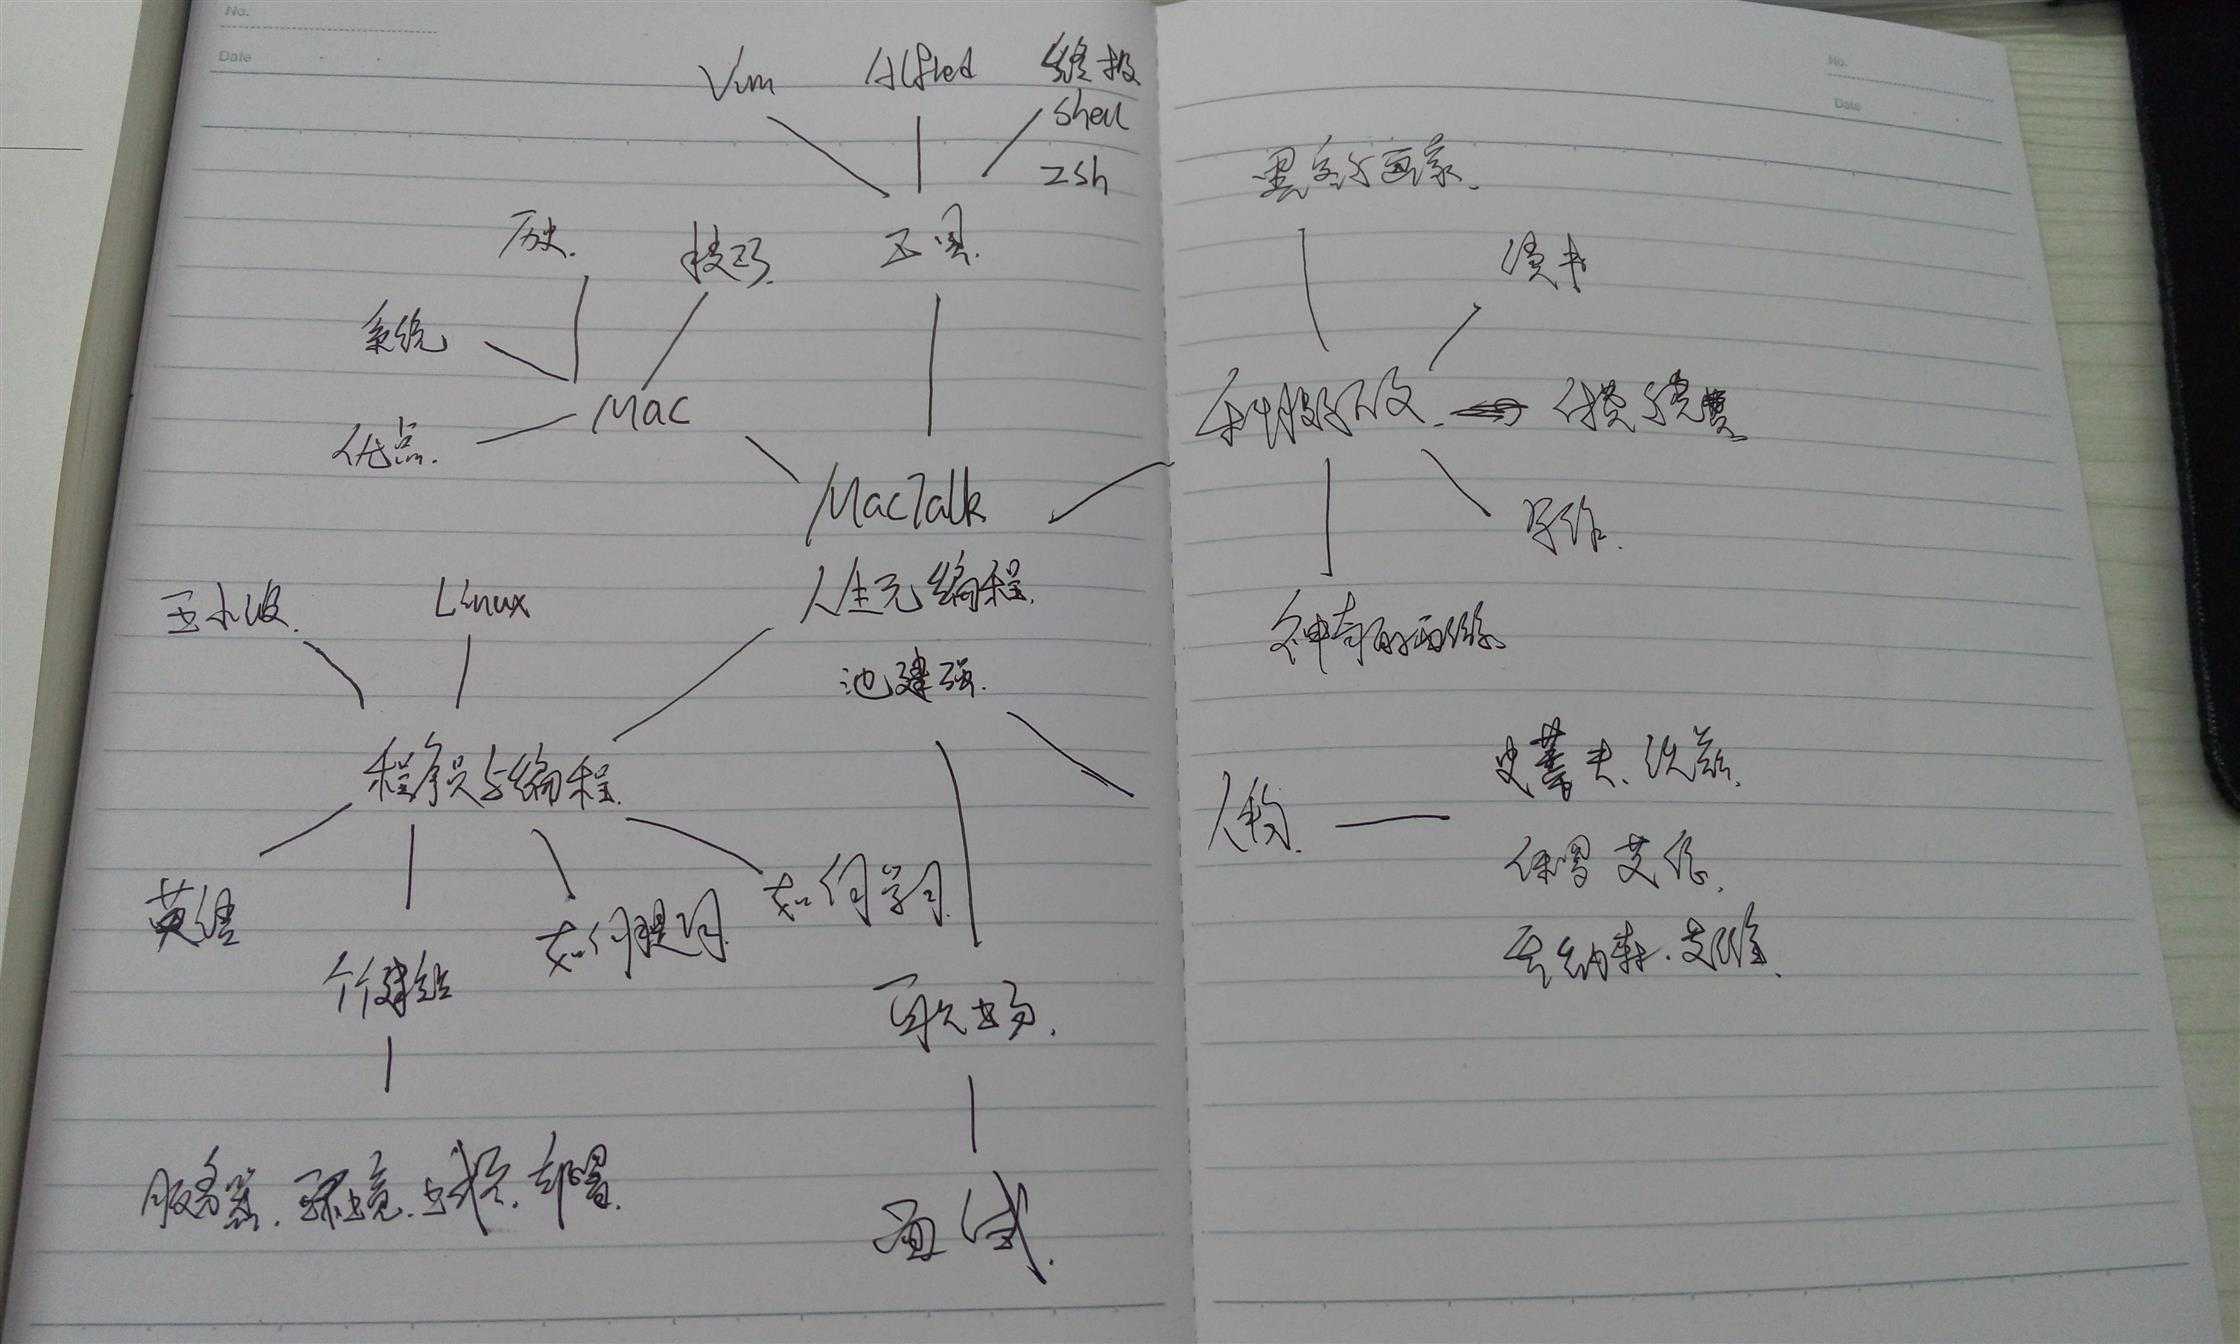 No.
Date
Vim
Alfred
终极
shell
zsh
历史.
技巧.
工具.
系统
Mac
优点.
MacTalk
人生元编程.
池建强.
王小波.
Linux
程序员与编程.
英语
个人建站
如何提问.
如何学习.
服务器.环境.域名.部署.
职场.
面试.
No.
Date
黑客与画家.
读书
科技与人文.
付费与免费
写作.
神奇的西红柿.
人物.
史蒂夫.沃兹.
保罗 艾伦.
乔纳森.艾维.